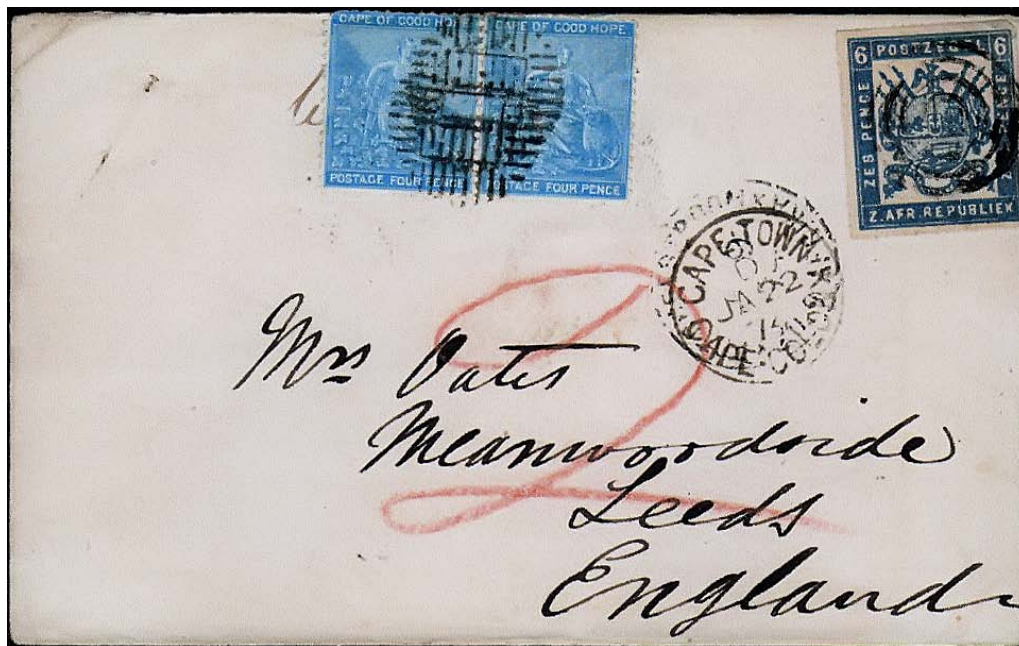 CAPE OF GOOD HOPE
CAPE OF GOOD HOPE
POSTAGE FOUR PENCE
POSTAGE FOUR PENCE
6 POSTZEGEL 6
ZES PENCE
Z. AFR. REPUBLIEK
CAPE TOWN
JA 22
CAPE COLONY
2
Mrs Oates
Meanwoodside
Leeds
England